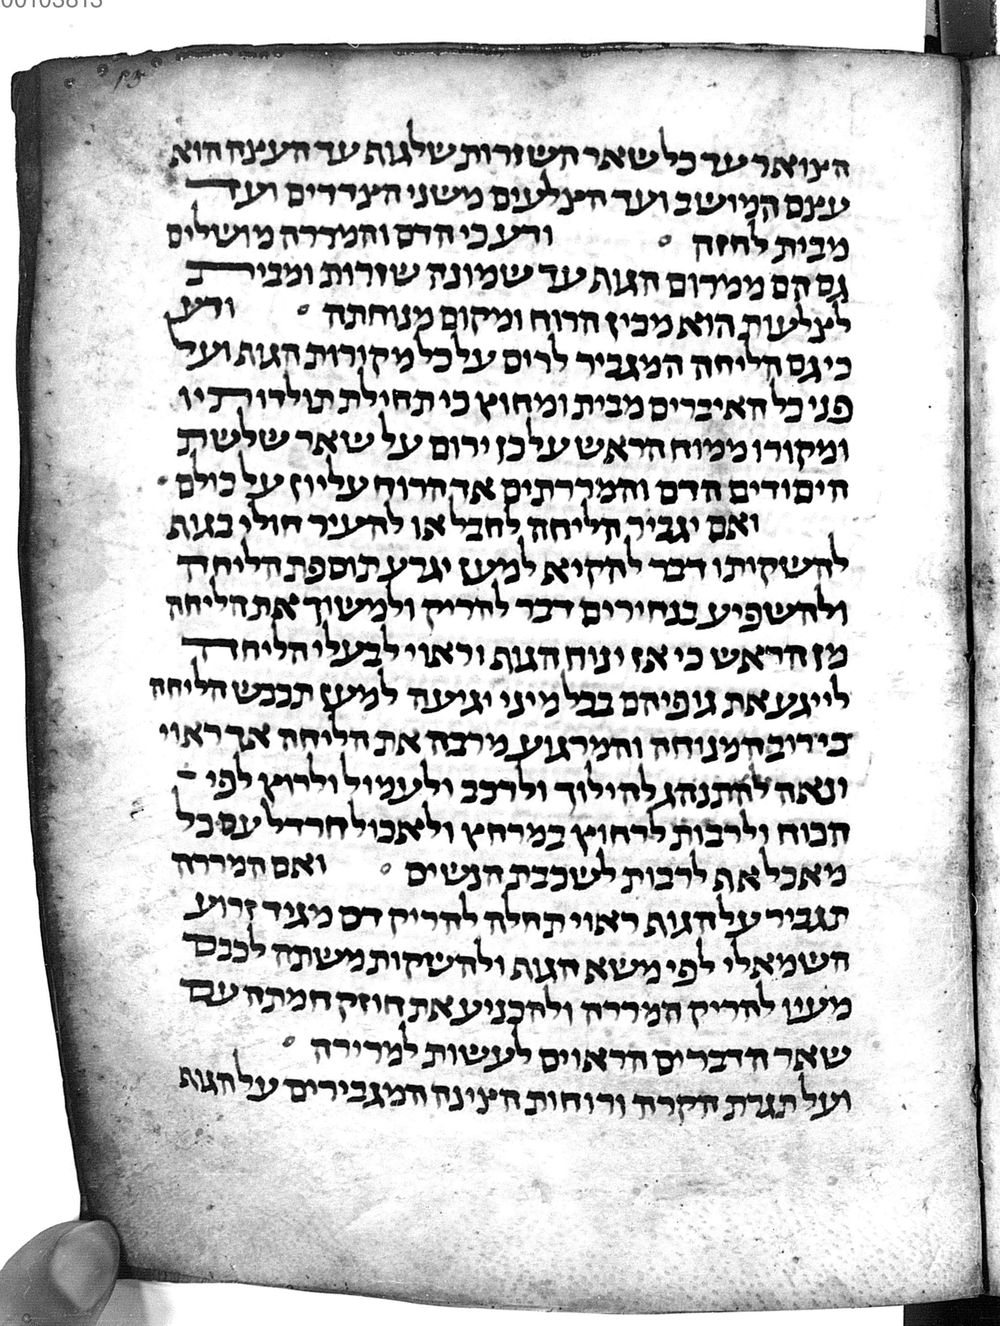 הצואר עד כל שאר השזרות שלגות עד העצה הוא
עצם המושב ועד הצלעים משני הצדדים ועד
מבית לחזה ודע כי הדם והמררה מושלים
גם הם ממרום הגות עד שמונה שזרות ומבית
לצלעות הוא מכיז הרוח ומקום מנוחתה ודע
כי גם הליחה המגביר לרים על כל מקורות הגות ועל
פני כל האיברים מבית ומחוץ כי תחילת תולדותיו
ומקורו ממוח הראש על כן ירום על שאר שלשת
היסודים הדם והמררתים אך הרוח עליון על כולם
ואם יגביר הליחה לחבל או להעיר חולי בגות
להשקותו דבר להקיא למען יגרע תוספת הליחה
ולהשפיע בנחירים דבר להריק ולמשוך את הליחה
מן הראש כי אז ינוח הגות וראוי לבעלי הליחה
לייגע את גופיהם בכל מיני יגיעה למען תכבש הליחה
כי רוב המנוחה והמרגוע מרבה את הליחה אך ראוי
ונאה להתנהג להילוך ולרכב ולעמול ולרוץ לפי
הכוח ולרבות לרחוץ במרחץ ולאכול חרדל עם כל
מאכל את לרבות לשכבת הנשים ואם המררה
תגביר על הגות ראוי תחלה להריק דם מגיד זרוע
השמאלי לפי משא הגות ולהשקות משתה לכבס
מעט להריק המררה ולהכניע את חוזק חמתה עם
שאר הדברים הראוים לעשות למרירה
ועל תגרת הקרה ורוחות הצינה המגבירים על הגות